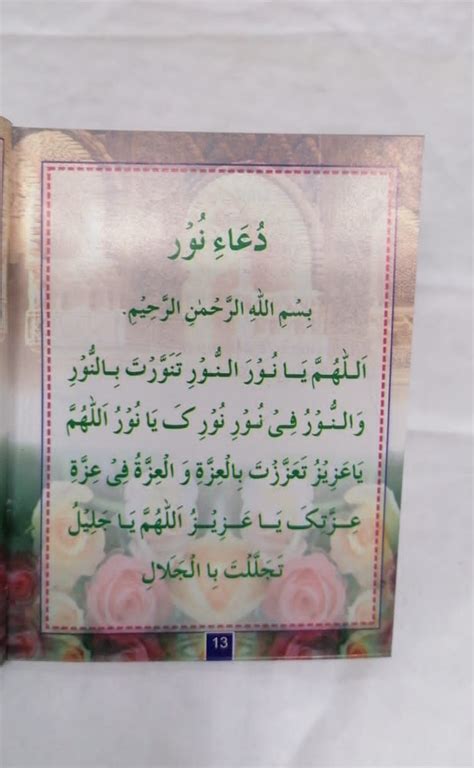 دُعَاءِ نُوْر
بِسْمِ اللهِ الرَّحْمٰنِ الرَّحِيْمِ.
اَللّٰهُمَّ يَا نُوْرَ النُّوْرِ تَنَوَّرْتَ بِالنُّوْرِ
وَالنُّوْرُ فِىْ نُوْرِ نُوْرِ کَ يَا نُوْرُ اَللّٰهُمَّ
يَاعَزِيْزُ تَعَزَّزْتَ بِالْعِزَّةِ وَ الْعِزَّةُ فِىْ عِزَّةِ
عِزَّتِکَ يَا عَزِيْزُ اَللّٰهُمَّ يَا جَلِيْلُ
تَجَلَّلْتَ بِا لْجَلَالِ
13